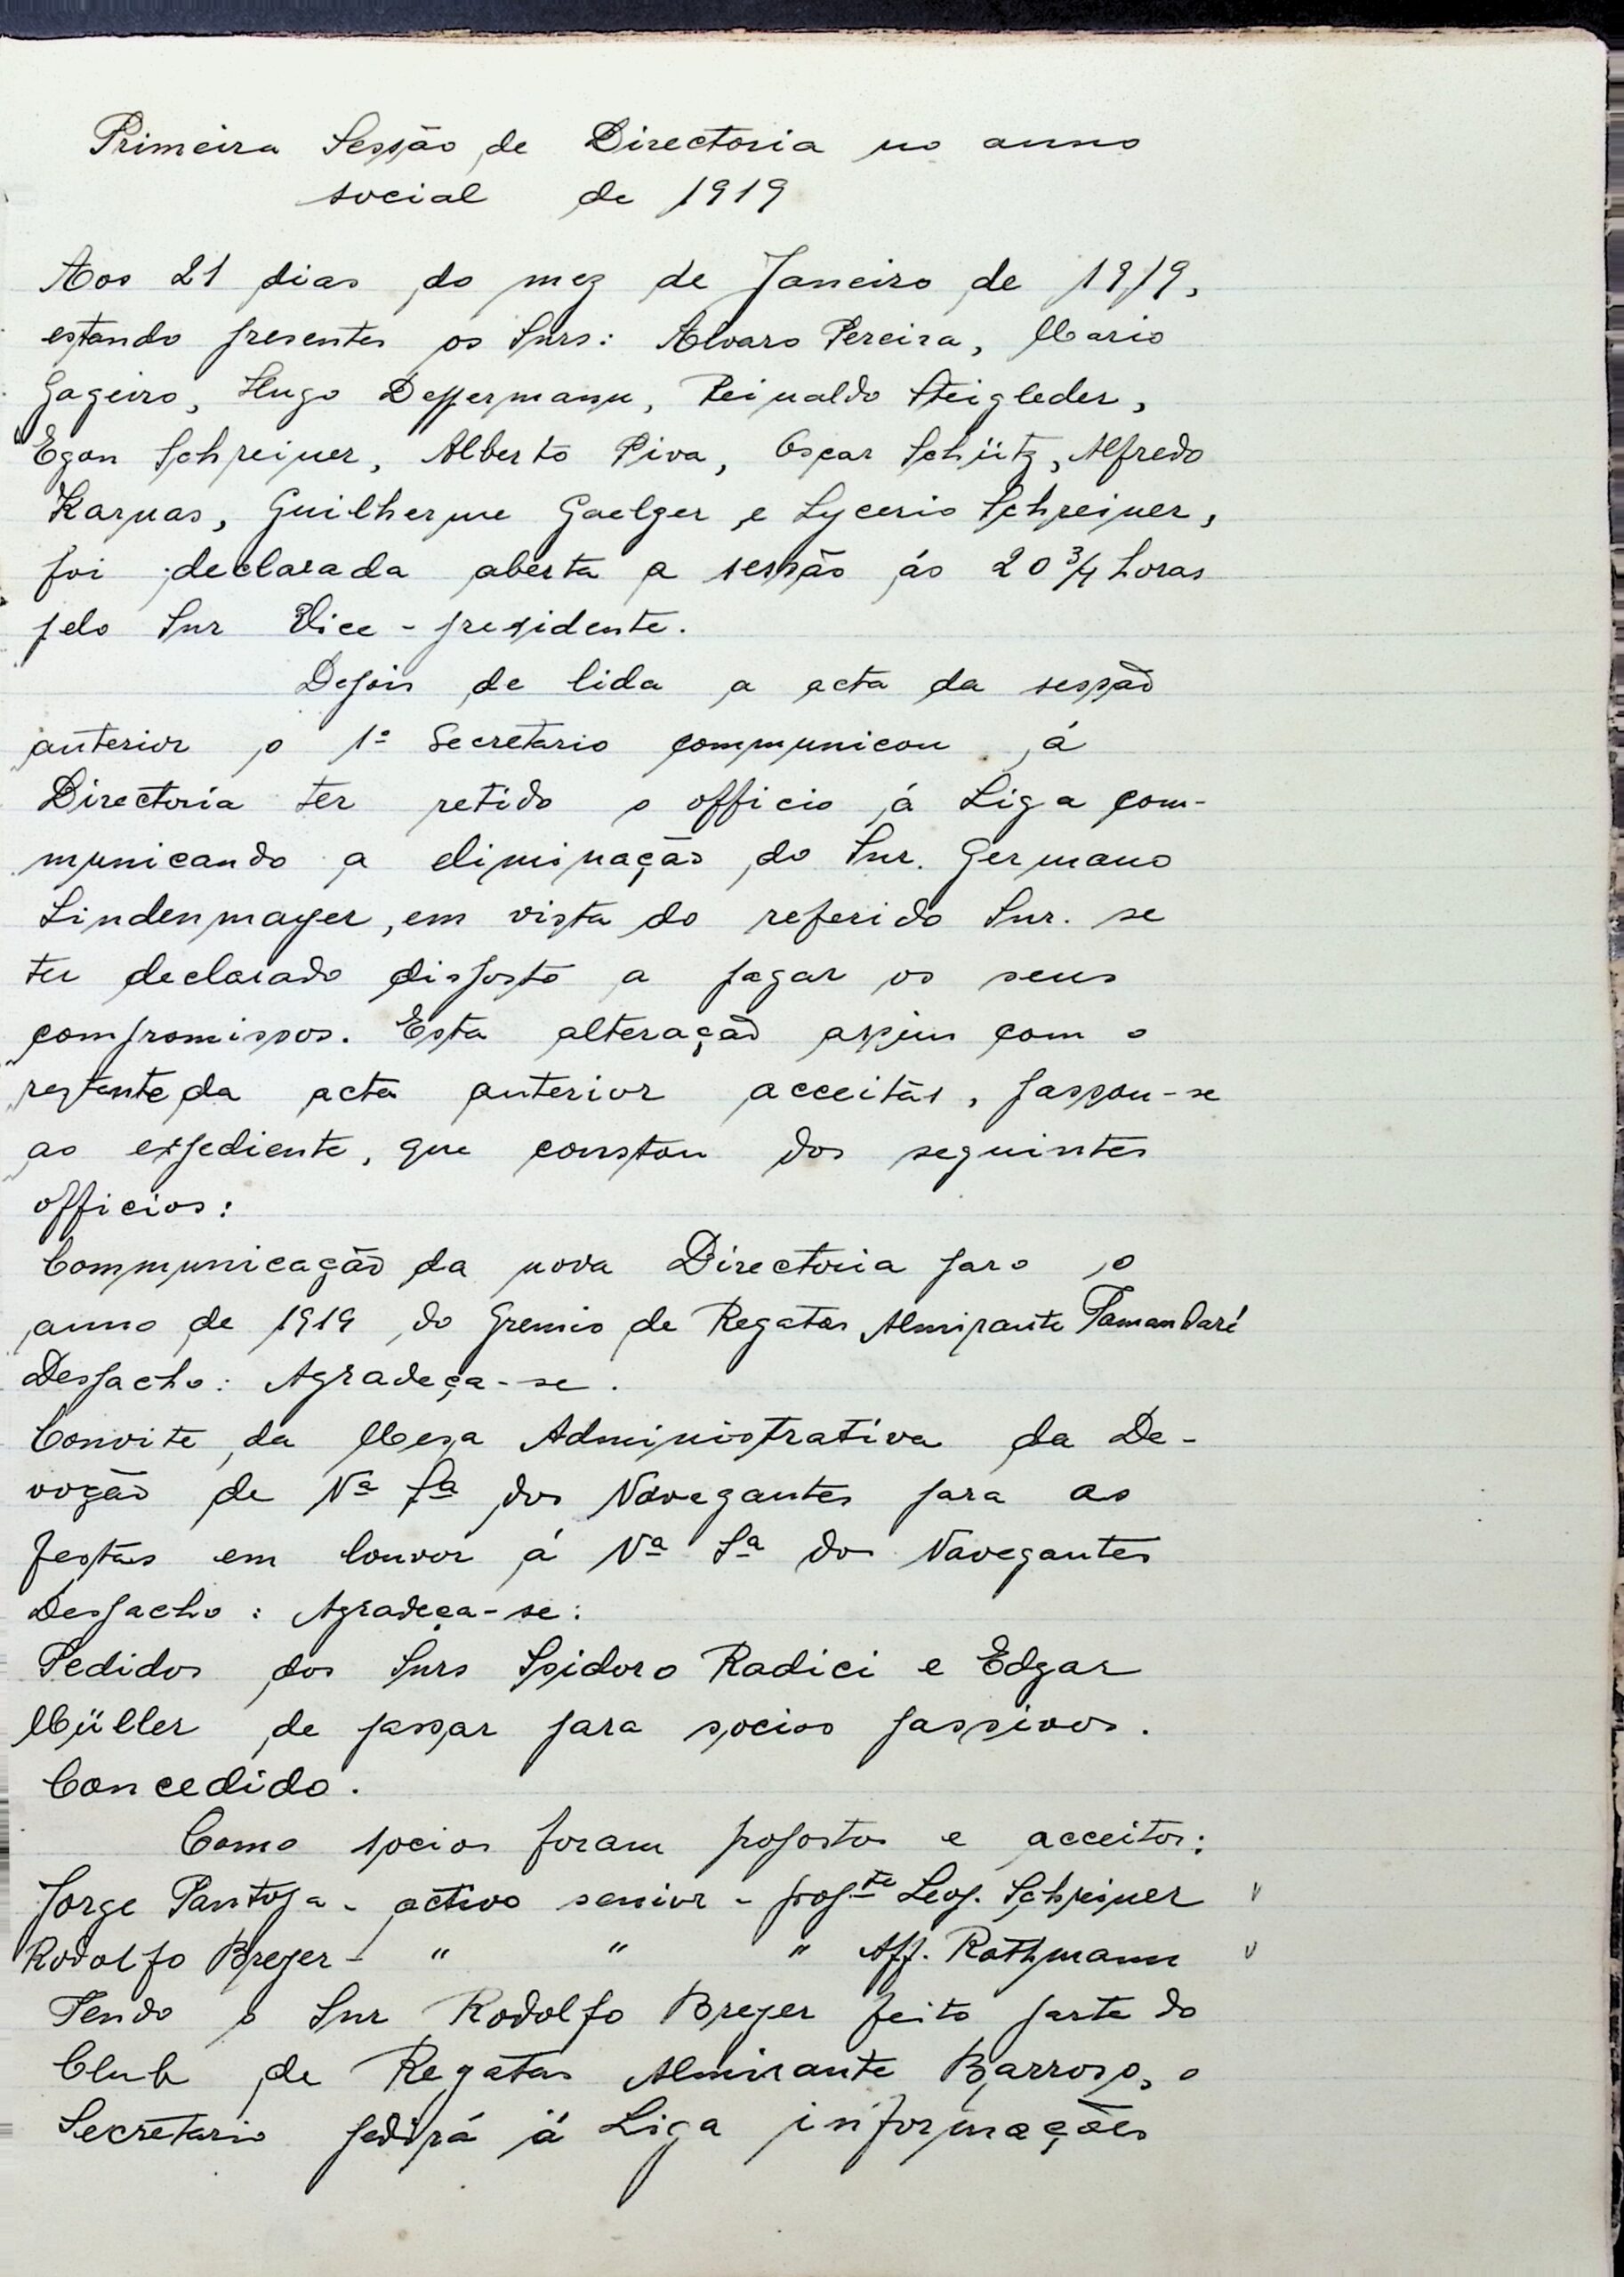 Primeira Sessão de Directoria no anno
social de 1919
Aos 21 dias do mez de Janeiro de 1919,
estando presentes os Snrs: Alvaro Pereira, Mario
Gageiro, Hugo Deppermann, Reinaldo Steigleder,
Egon Schreiner, Alberto Piva, Oscar Schütz, Alfredo
Karnas, Guilherme Gaelzer e Lycerio Schreiner,
foi declarada aberta a sessão ás 20 3/4 horas
pelo Snr Vice-presidente.
Depois de lida a acta da sessão
anterior o 1º Secretario communicou á
Directoria ter retido o officio á Liga com-
municando a eliminação do Snr. Germano
Lindenmayer, em vista do referido Snr. se
ter declarado disposto a pagar os seus
compromissos. Esta alteração assim com o
restante da acta anterior acceitas, passou-se
ao expediente, que constou dos seguintes
officios:
Communicação da nova Directoria para o
anno de 1919 do Gremio de Regatas Almirante Tamandaré
Despacho: Agradeça-se.
Convite da Mesa Administrativa da De-
voção de Nª Sª dos Navegantes para as
festas em louvor á Nª Sª dos Navegantes
Despacho: Agradeça-se:
Pedidos dos Snrs Isidoro Radici e Edgar
Müller de passar para socios passivos.
Concedido.
Como socios foram propostos e acceitos:
Jorge Pantoja - activo senior - propte Leop. Schreiner v
Rodolfo Breyer - " " " Aff. Rothmann v
Tendo o Snr Rodolfo Breyer feito parte do
Club de Regatas Almirante Barroso, o
Secretario pedirá á Liga informações